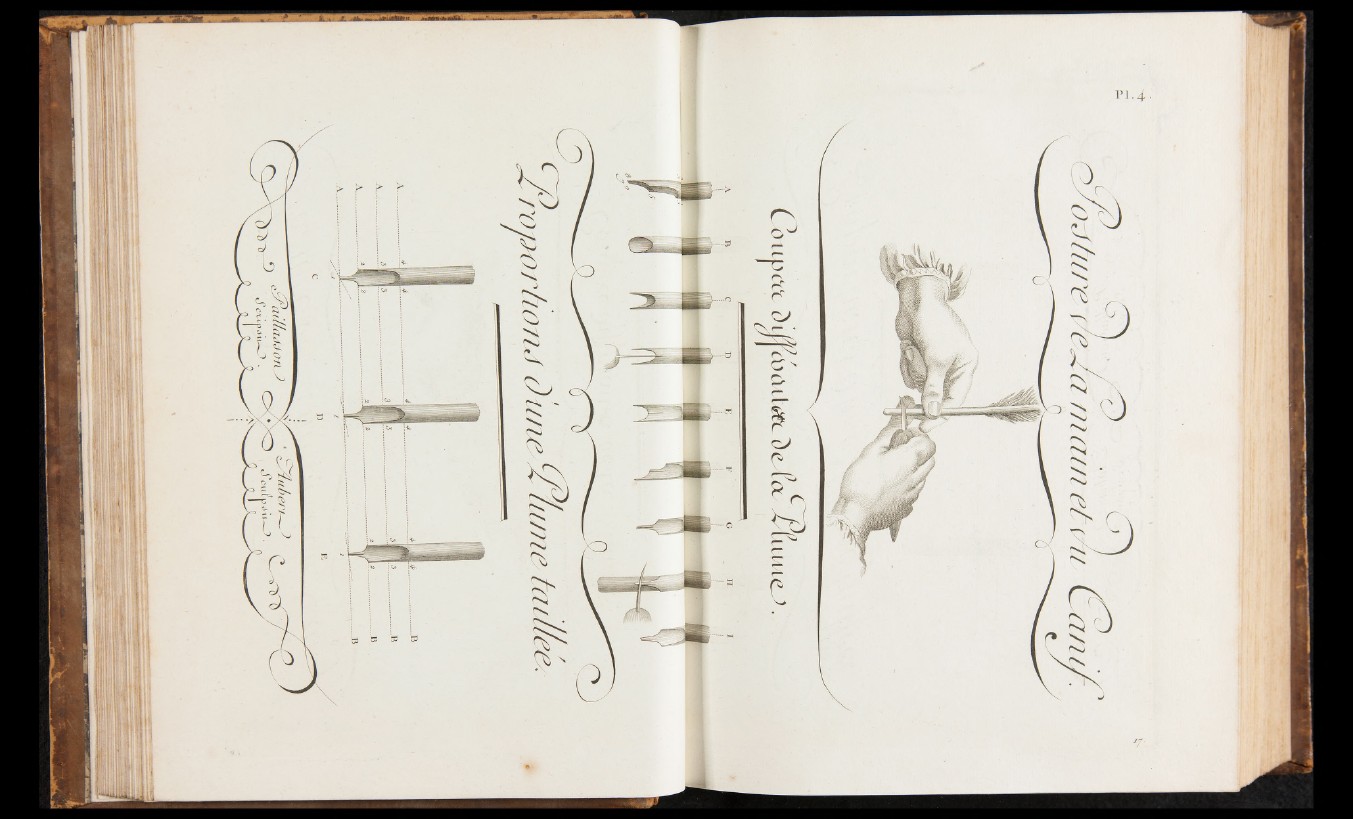 Pl. 4.
17
Posture de La main et du Canif.
Coupes différentes de la Plume.
A B C D E F G H I
Proportions d'une Plume taillée.
A 4 4 4 4 4 4 B
A 3 3 3 3 3 3 B
A 2 2 2 2 2 2 B
A B
C D E
Paillasson Scripsit.
Aubert Sculpsit